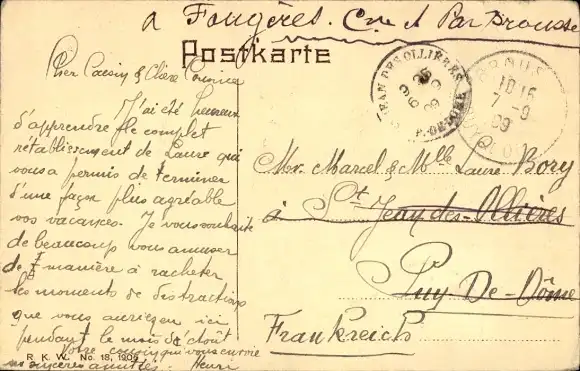 à Fougères. Cne de Par Brousse
Postkarte
Cher Cousin & Chère Cousine
J'ai été heureux
d'apprendre le complet
rétablissement de Laure qui
vous a permis de terminer
d'une façon plus agréable
vos vacances. Je vous souhaite
de beaucoup vous amuser
de manière à racheter
les moments de distractions
que vous auriez eu ici
pendant le mois d'août
Votre cousin qui vous envoie
ses sincères amitiés. Henri
R. K. W. No. 18, 1906
ST JEAN DES OLLIÈRES
P.-DE-DÔME
09
BROUS
10 15
7 - 9
09
PUY DE DOME
Mr. Marcel & Mlle Laure Bory
à St Jean-des-Ollières
Puy-De-Dôme
Frankreich